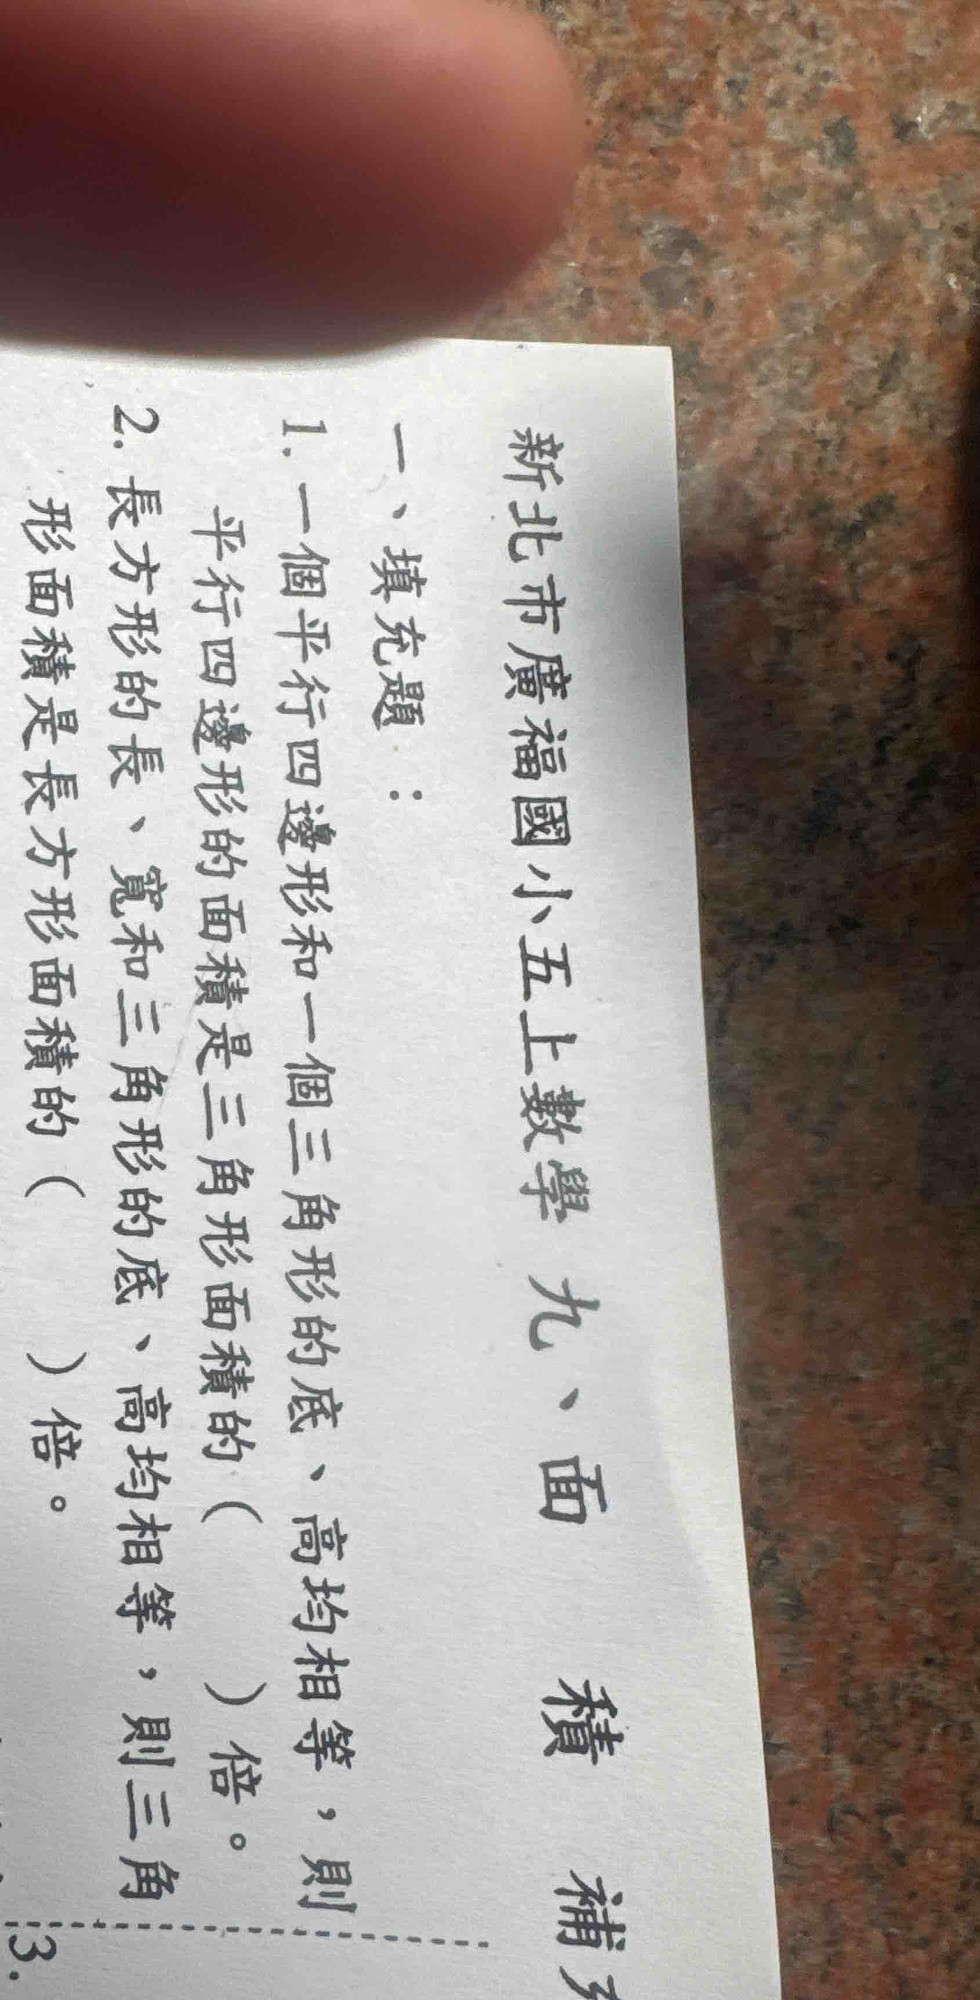 新北市廣福國小五上數學 九、面 積 補
一、填充題：
1. 一個平行四邊形和一個三角形的底、高均相等，則
平行四邊形的面積是三角形面積的（ ）倍。
2. 長方形的長、寬和三角形的底、高均相等，則三角
形面積是長方形面積的（ ）倍。
3.